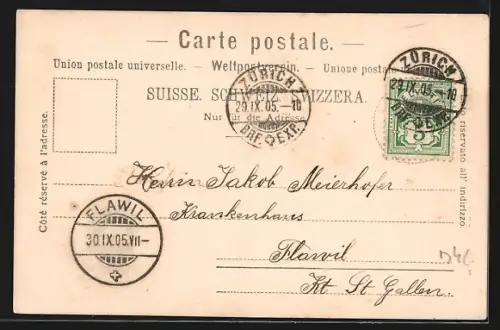 — Carte postale. —
Union postale universelle. — Weltpostverein. — Unione postale
SUISSE. SCHWEIZ. SVIZZERA.
Nur für die Adresse.
Côté réservé à l'adresse.
riservato all' indirizzo
ZÜRICH
29.IX.05.–10
BRF. EXP.
ZÜRICH
29.IX.05.–10
BRF. EXP.
5
FLAWIL
30.IX.05.VII–
Herrn Jakob Meierhofer
Krankenhaus
Flawil
Kt St Gallen.